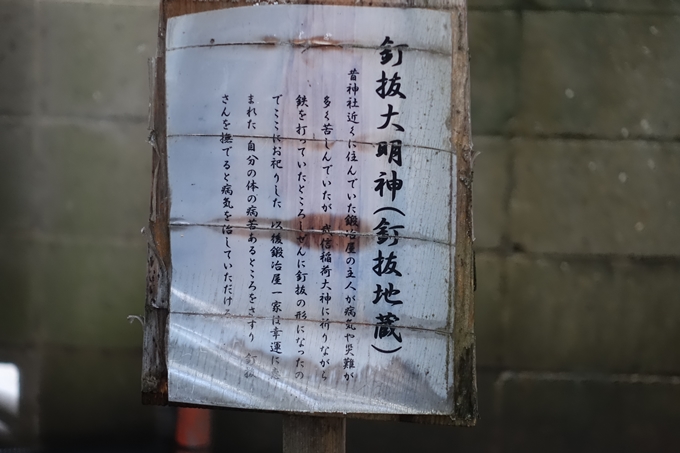 釘抜大明神(釘抜地蔵)
昔神社近くに住んでいた鍛冶屋の主人が病気や災難が
多く苦しんでいたが 武信稲荷大神に祈りながら
鉄を打っていたところしぜんに釘抜の形になったの
でここにお祀りした 以後鍛冶屋一家は幸運に
まれた 自分の体の病苦あるところをさすり 釘抜
さんを撫でると病気を治していただけ